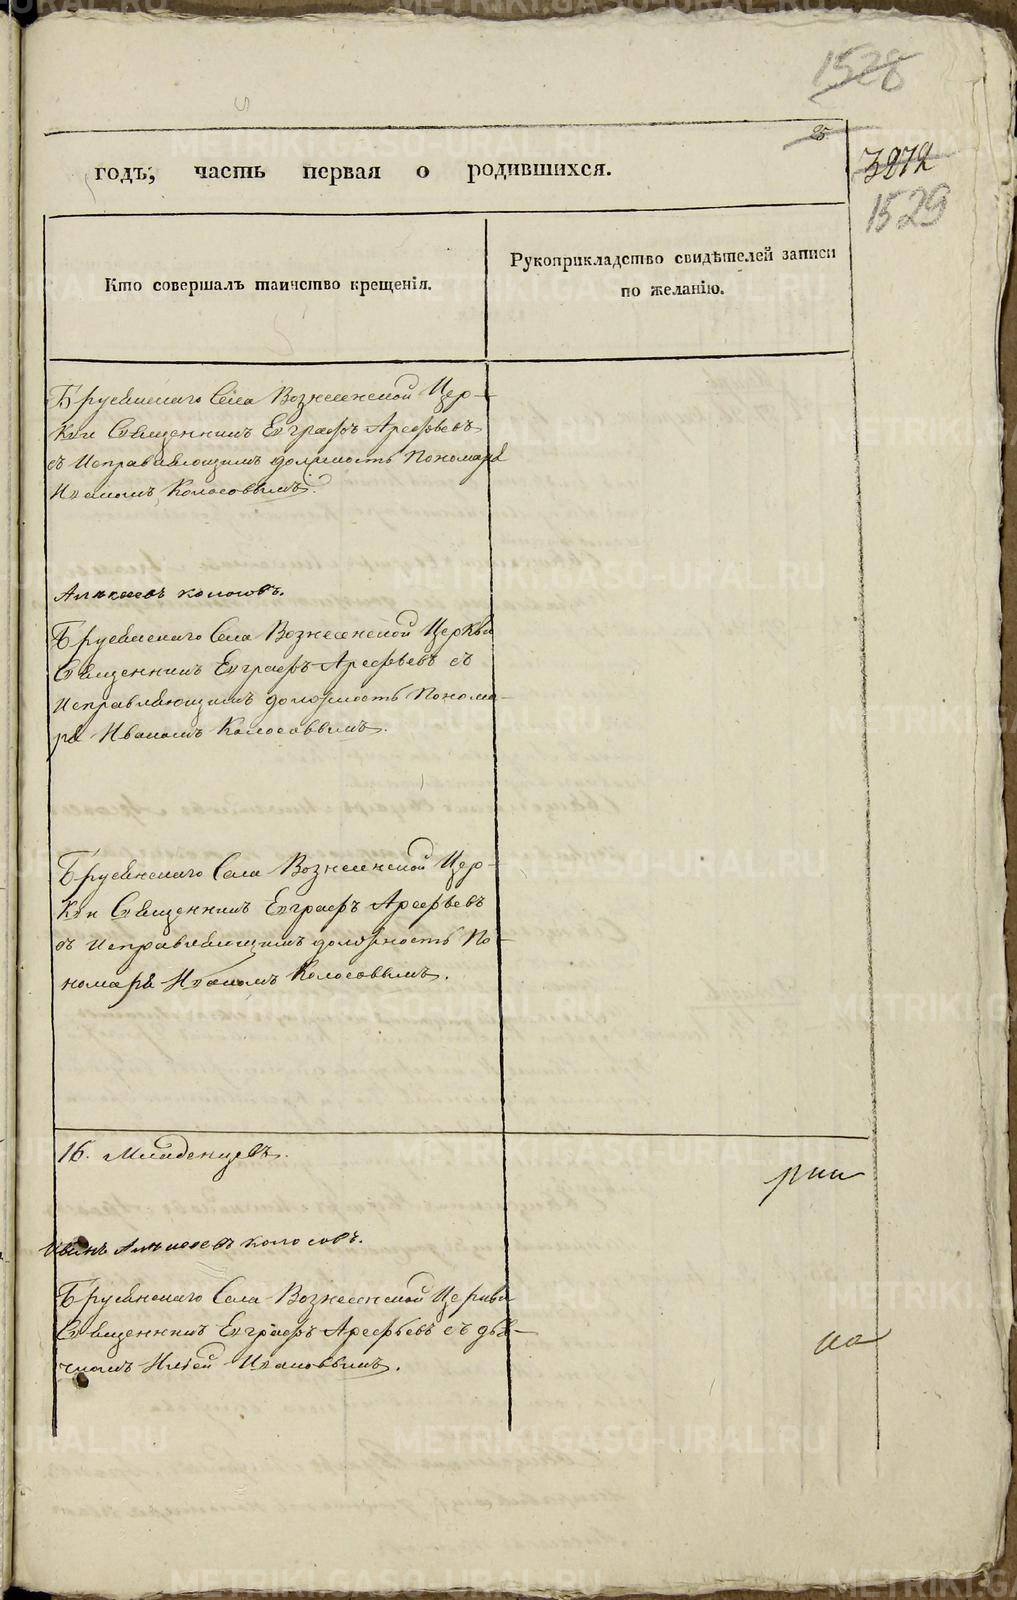 1528
25
3272
1529
годъ, часть первая о родившихся.
Кто совершалъ таинство крещенія.
Рукоприкладство свидѣтелей записи
по желанію.
Бруснянскаго Села Вознесенской Цер-
кви Священникъ Евграфъ Арефьевъ
съ Исправляющимъ должность Пономаря
Иваномъ Колосовымъ.
Алексеевъ колосовъ.
Бруснянскаго Села Вознесенской Церкви
Священникъ Евграфъ Арефьевъ съ
Исправляющимъ должность Понома-
ря Иваномъ Колосовымъ.
Бруснянскаго Села Вознесенской Цер-
кви Священникъ Евграфъ Арефьевъ
съ Исправляющимъ должность По-
номаря Иваномъ Колосовымъ.
16. Младенцевъ.
Иванъ Алексеевъ колосовъ.
Бруснянскаго Села Вознесенской Церкви
Священникъ Евграфъ Арефьевъ съ дья-
чкомъ Ивановымъ.
METRIKI.GASO-URAL.RU